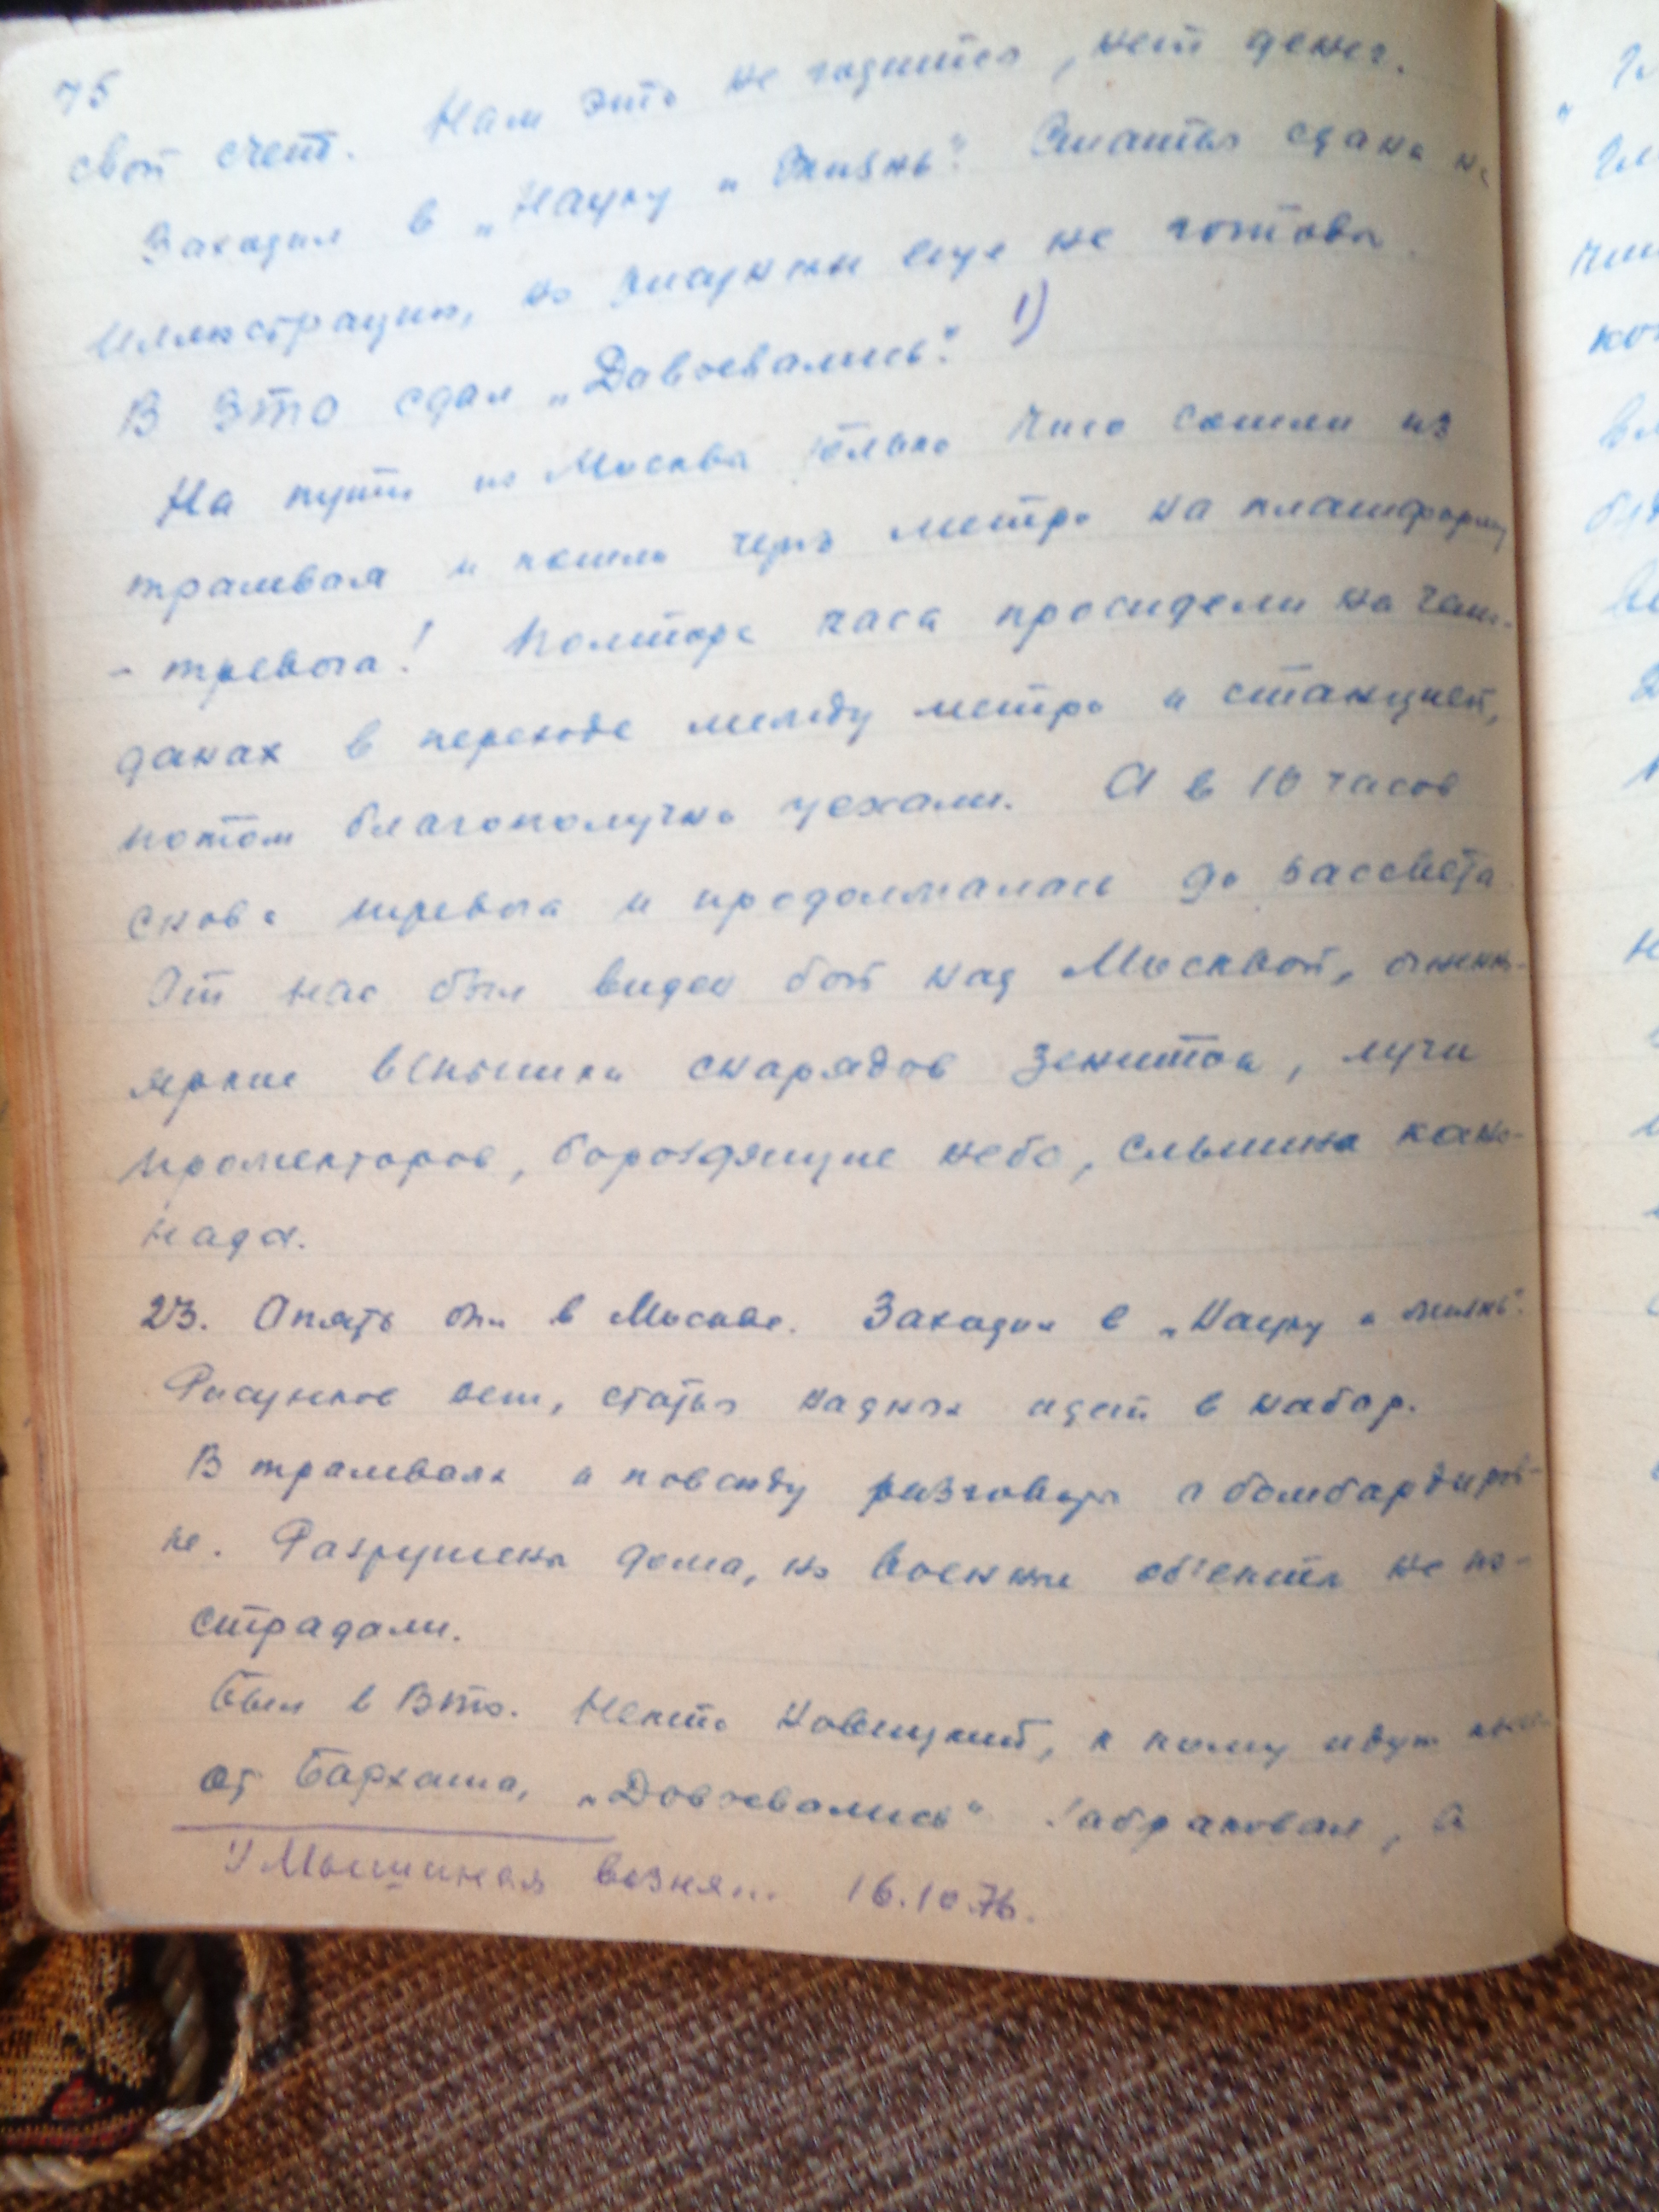 75
свой счет. Нам это не годится, нет денег.
Заходил в „Науку и Жизнь". Статья сдана на
иллюстрацию, но рисунки еще не готовы.
В ВТО сдал „Довоевались". 1)
На пути из Москвы только что сошли из
трамвая и пошли через метро на платформу
- тревога! Полтора часа просидели на чемо-
данах в переходе между метро и станцией,
потом благополучно уехали. А в 10 часов
снова тревога и продолжалась до рассвета.
От нас был виден бой над Москвой, огненно-
яркие вспышки снарядов зениток, лучи
прожекторов, бороздящие небо, слышна кано-
нада.
23. Опять был в Москве. Заходил в „Науку и жизнь".
Рисунков нет, статья на днях идет в набор.
В трамваях и повсюду разговоры о бомбардиров-
ке. Разрушены дома, но военные об'екты не по-
страдали.
Был в ВТО. Некто Новицкий, к кому идут
от Бархаша, „Довоевались" забраковал, а
1) Мышиная возня... 16.10.76.